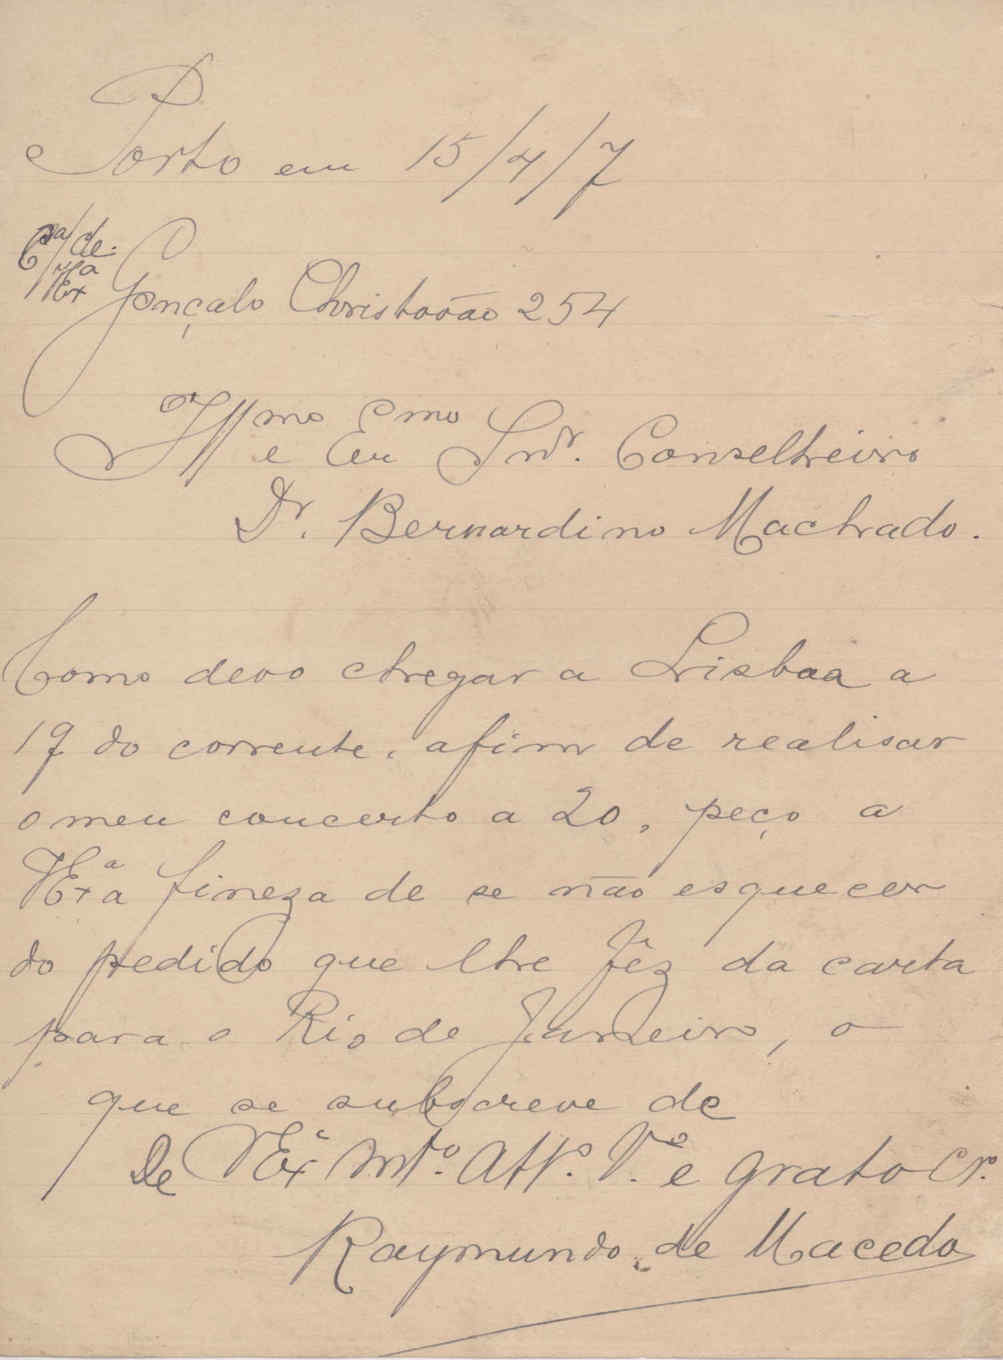 Porto em 15/4/7
Cª/de
V Exª Gonçalo Christovão 254
Illmo e Exmo Snr. Conselheiro
Dr. Bernardino Machado.
Como devo chegar a Lisboa a
17 do corrente, afim de realisar
o meu concerto a 20, peço a
V Exª a fineza de se não esquecer
do pedido que lhe fêz da carta
para o Rio de Janeiro, o
que se subscreve de
De V Exª Mtº. Attº. Vº e grato Crº.
Raymundo de Macedo